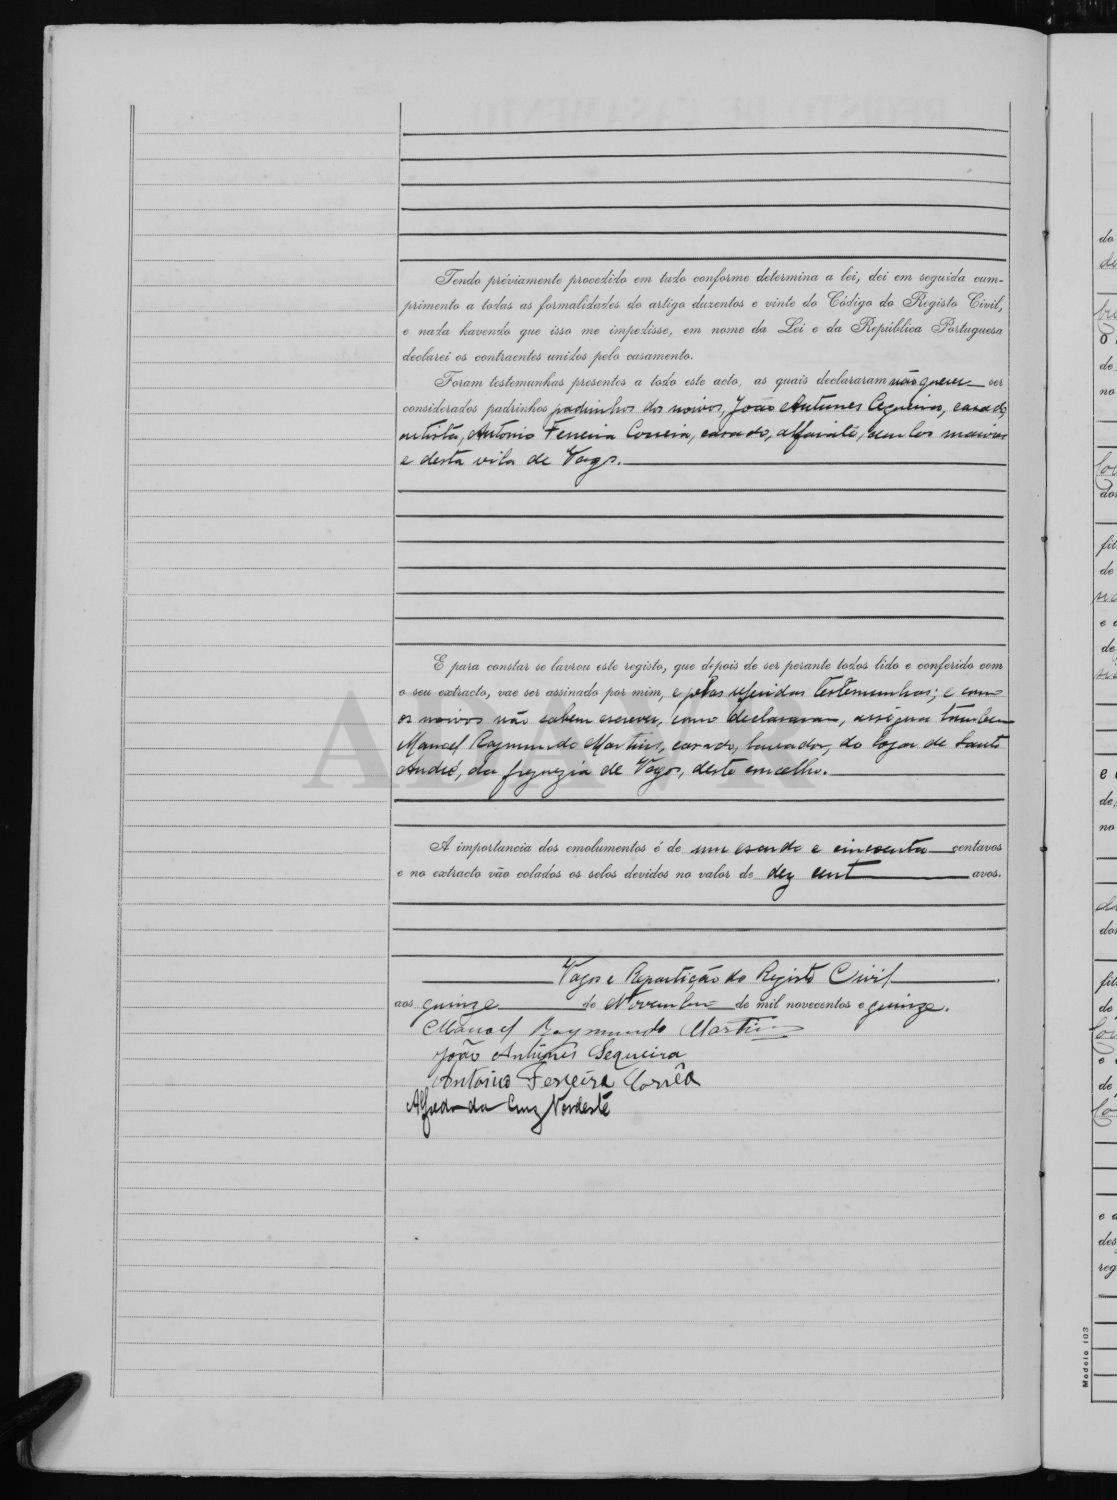 Tendo préviamente procedido em tudo conforme determina a lei, dei em seguida cum-
primento a todas as formalidades do artigo duzentos e vinte do Código do Registo Civil,
e nada havendo que isso me impedisse, em nome da Lei e da República Portuguesa
declarei os contraentes unidos pelo casamento.
Foram testemunhas presentes a todo este acto, as quais declararam não querer ser
considerados padrinhos padrinhos dos noivos, João Antunes Cequeira, casado,
artista, Antonio Ferreira Correia, casado, alfaiate, ambos maiores
e desta vila de Vagos.
E para constar se lavrou este registo, que depois de ser perante todos lido e conferido com
o seu extracto, vae ser assinado por mim, e pelas referidas testemunhas; e como
os noivos não sabem escrever, como declararam, assigna tambem
Manoel Raymundo Martins, casado, lavrador, do logar de Santo
André, da freguezia de Vagos, deste concelho.
ADAVR
A importancia dos emolumentos é de um escudo e cincoenta centavos
e no extracto vão colados os selos devidos no valor de dez cent avos.
Vagos e Repartição do Registo Civil
aos quinze de Novembro de mil novecentos e quinze.
Manoel Raymundo Martins
João Antunes Sequeira
Antonio Ferreira Corrêa
Alfredo da Cruz Nordeste
Modelo 103